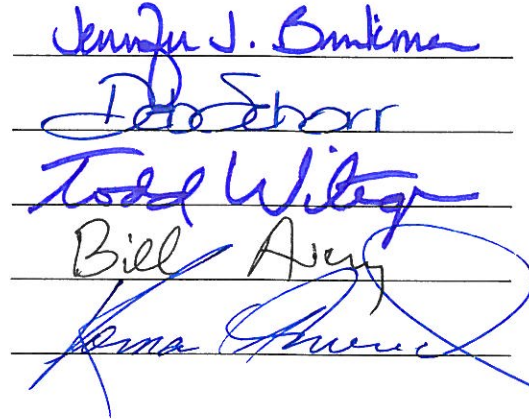 Jennifer J. Brinkman
Deb Schorr
Todd Wiltgen
Bill Avery
Roma Amundson